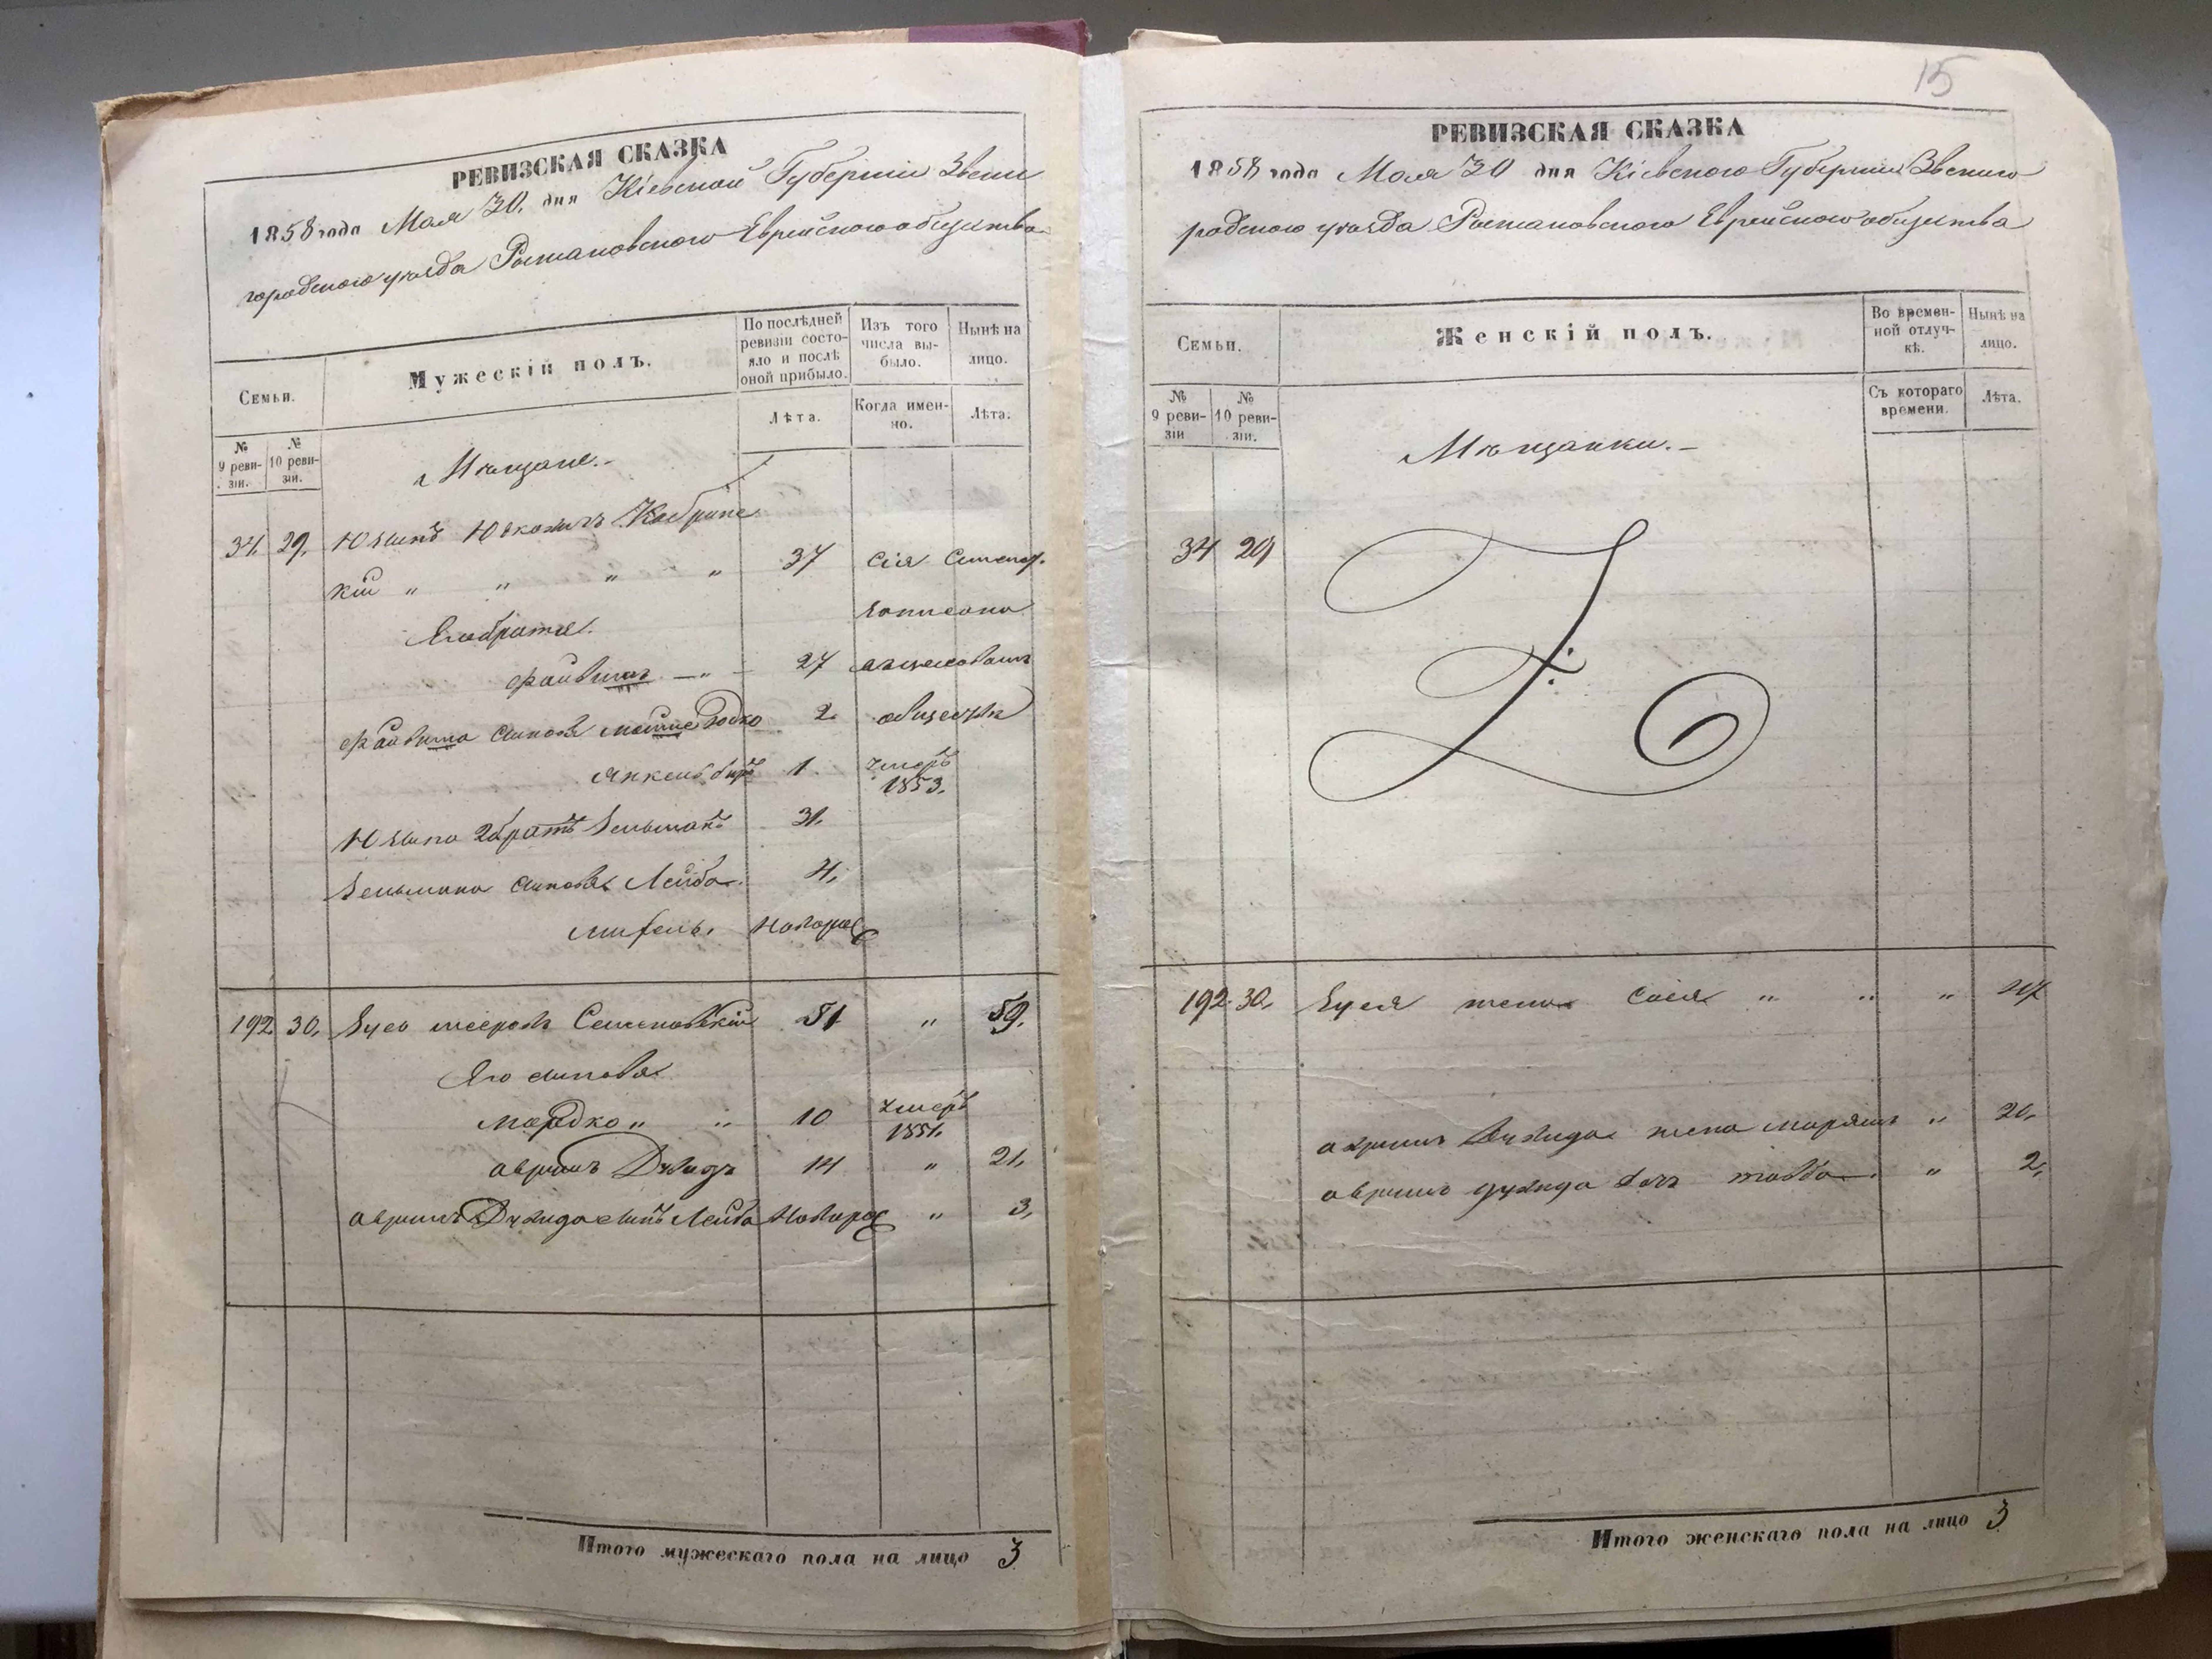 РЕВИЗСКАЯ СКАЗКА
1858 года Мая 30. дня Кіевской Губерніи Звени
городского уѣзда Еврейского общества
Семьи.
Мужескій полъ.
По послѣдней ревизіи состояло и послѣ оной прибыло.
Изъ того числа выбыло.
Нынѣ на лицо.
№ 9 ревизіи.
№ 10 ревизіи.
Лѣта.
Когда именно.
Лѣта.
Мѣщане.
34. 29. Юкловичъ Кобринс
кій " " " " 37 Сія
Его братья. записана
Файвишъ — " — 27
Файвиша сыновья Мошко 2. обществѣ
1. умеръ 1853.
2 братъ Зельманъ 31.
Зельмана сыновья Лейба 4.
Новорож
192 30. Зусь Семеновскій 51 " 59.
Его сыновья
Мордко " " 10 умеръ 1851.
Аврумъ Дувидъ 14 " 21.
Аврумъ Дувида сынъ Лейба Новорож " 3.
Итого мужескаго пола на лицо 3
15
РЕВИЗСКАЯ СКАЗКА
1858 года Мая 30 дня Кіевской Губерніи Звениго
родского уѣзда Еврейского общества
Семьи.
Женскій полъ.
Во временной отлучкѣ.
Нынѣ на лицо.
№ 9 ревизіи
№ 10 ревизіи.
Съ котораго времени.
Лѣта.
Мѣщанки.
34 29
192 30. Зуся жена Сося " " "
Аврумъ Дувида жена Марьямъ " 20.
Аврумъ Дувида дочь Тоба " 2.
Итого женскаго пола на лицо 3